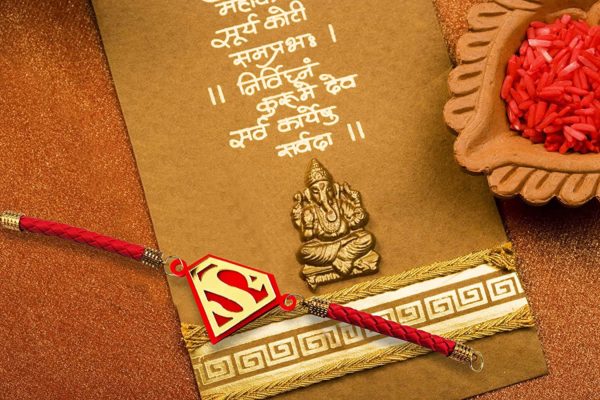 सूर्य कोटी
समप्रभः ।
॥ निर्विघ्नं
कुरूमे देव
सर्व कार्येषु
सर्वदा ॥